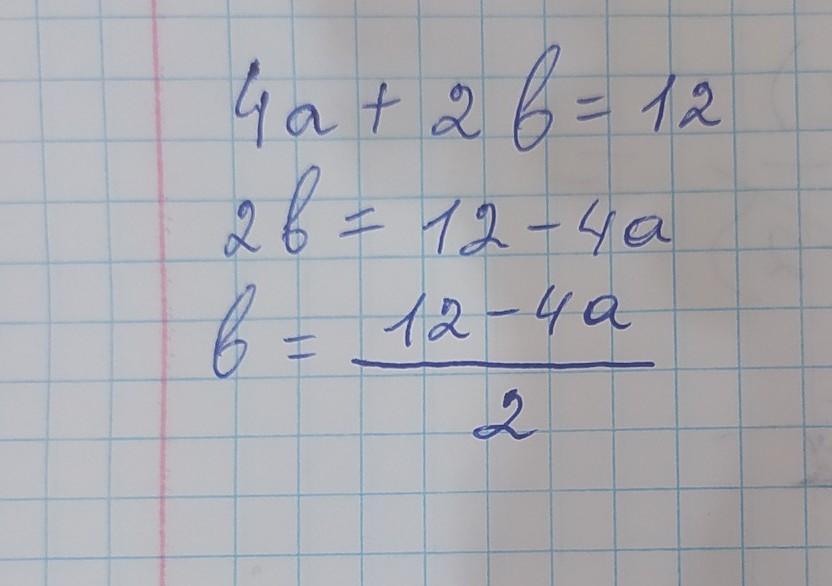 4a + 2b = 12
2b = 12 - 4a
b = \frac{12 - 4a}{2}